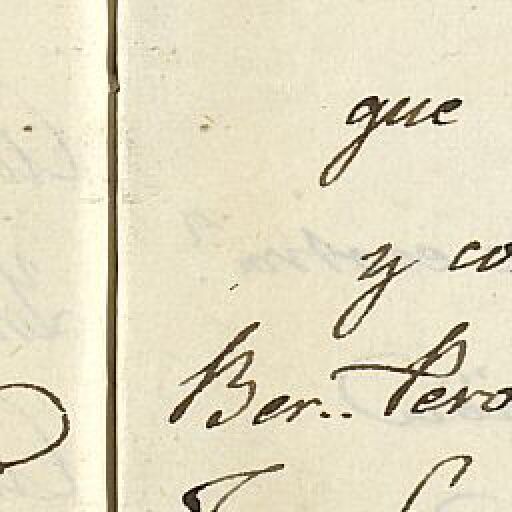 que
y co
Ber.. Pero